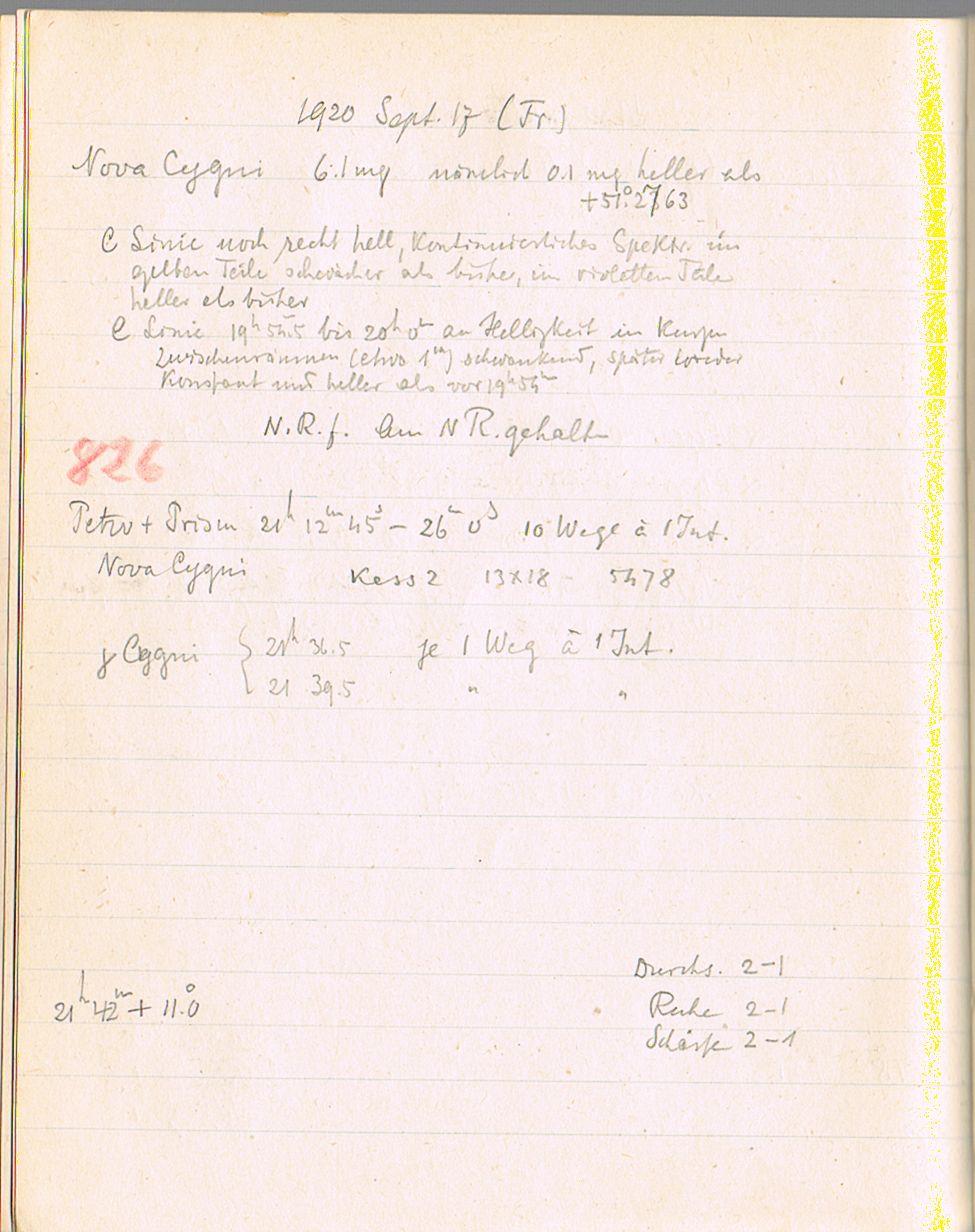 1920 Sept. 17 (Fr.)
Nova Cygni 6.1 mg nämlich 0.1 mg heller als
+51.°2763
C Linie noch recht hell, Kontinuierliches Spektr. im
gelben Teile schwächer als bisher, im violetten Teile
heller als bisher
C Linie 19h bis 20h an Helligkeit in kurzen
Zwischenräumen (etwa 1m) schwankend, später wieder
Konstant und heller als vor 19h
N.R.f. am N R. gehalt
826
Petzv + Prism 21h 12m 45s – 26m 0s 10 Wege à 1 Int.
Nova Cygni Kess 2 13x18 5478
γ Cygni { 21h 36.5 je 1 Weg à 1 Int.
21 39.5 " "
Durchs. 2–1
21h 42m + 11.°0
Ruhe 2–1
Schärfe 2–1